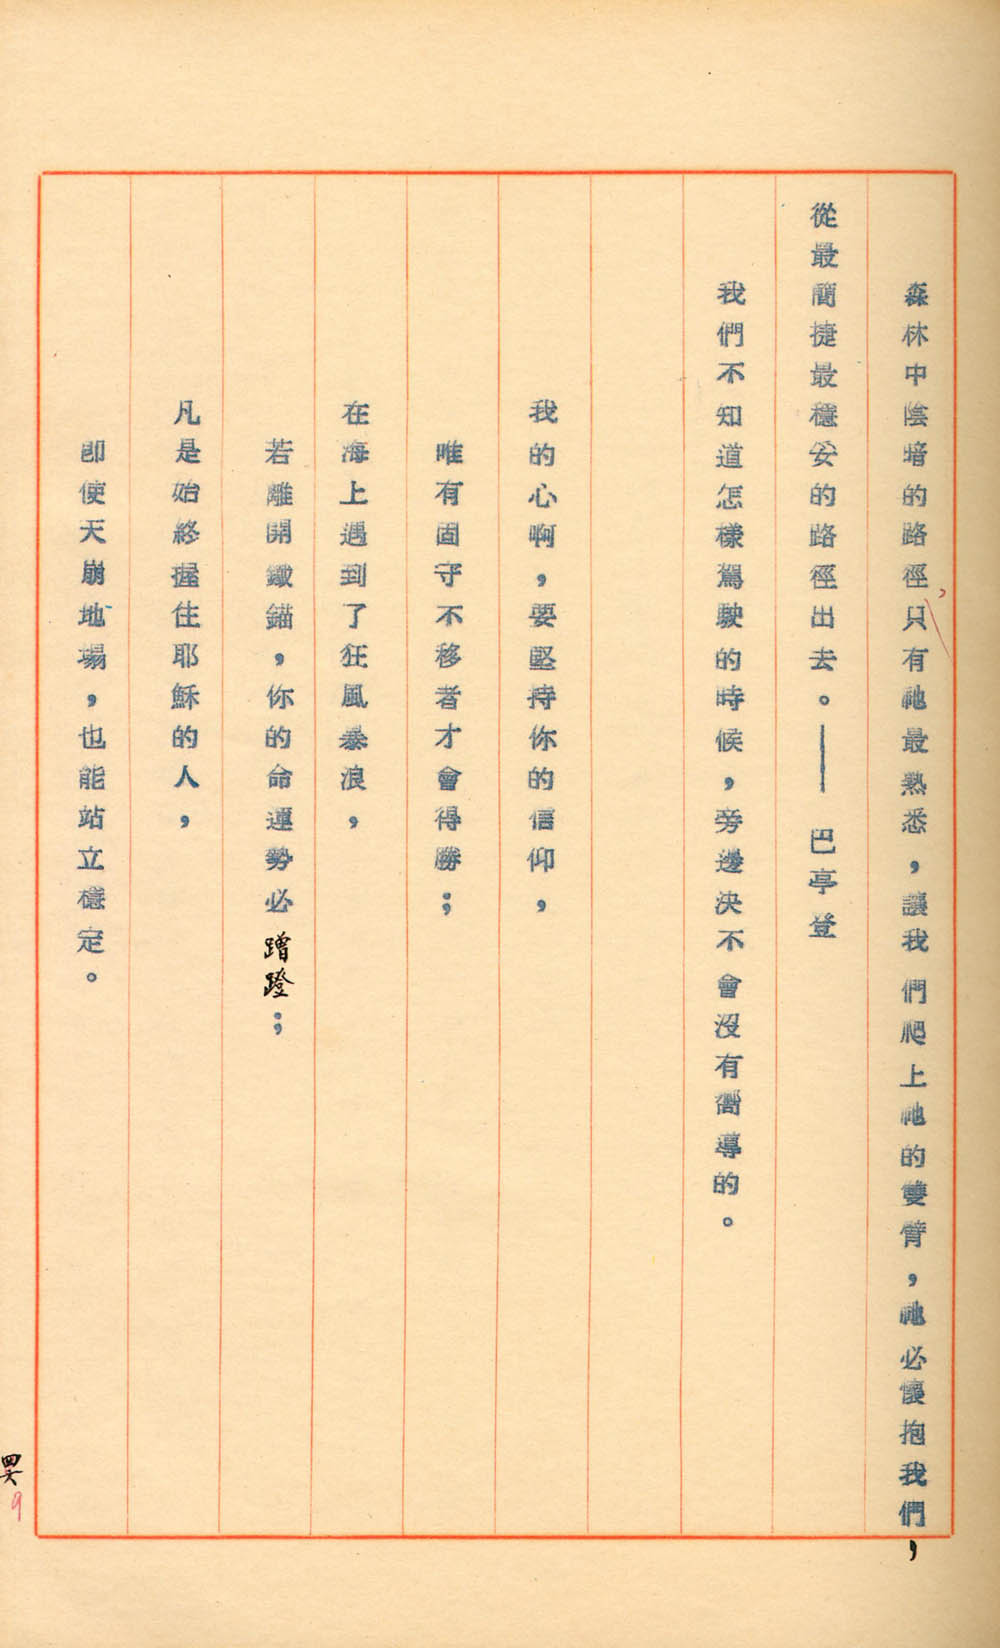 森林中陰暗的路徑，只有祂最熟悉，讓我們爬上祂的雙臂，祂必懷抱我們，
從最簡捷最穩妥的路徑出去。——巴亭登
我們不知道怎樣駕駛的時候，旁邊決不會沒有嚮導的。
我的心啊，要堅持你的信仰，
唯有固守不移者才會得勝；
在海上遇到了狂風暴浪，
若離開鐵錨，你的命運勢必蹭蹬；
凡是始終握住耶穌的人，
即使天崩地塌，也能站立穩定。
四六
9